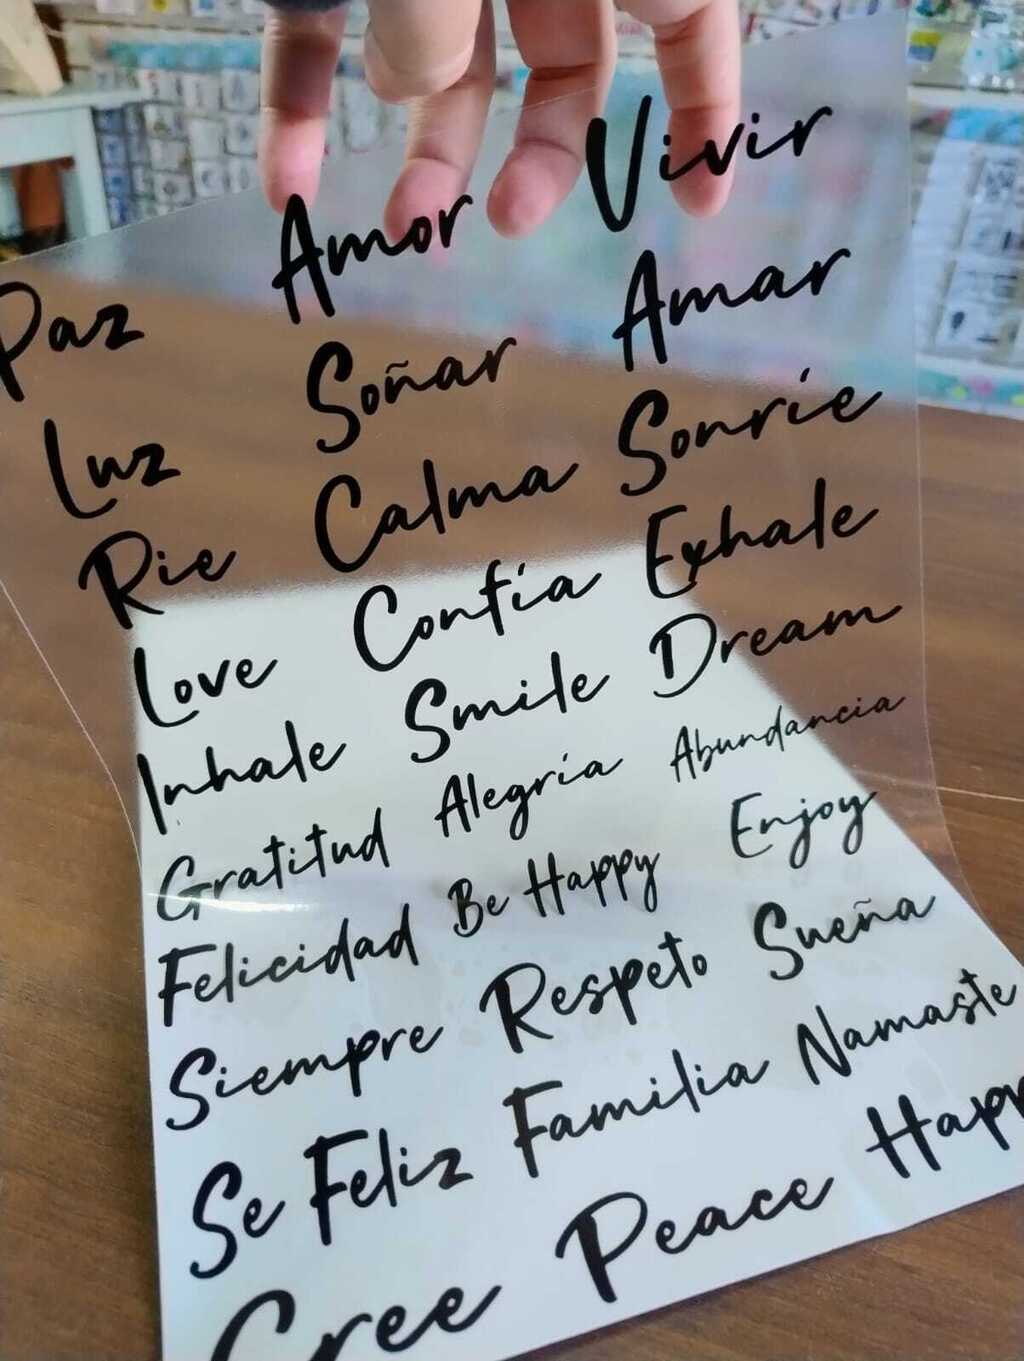 Paz Amor Vivir
Luz Soñar Amar
Rie Calma Sonríe
Love Confía Exhale
Inhale Smile Dream
Gratitud Alegría Abundancia
Felicidad Be Happy Enjoy
Siempre Respeto Sueña
Se Feliz Familia Namaste
Cree Peace Happ